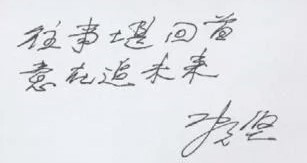 往事堪回首
意在追未来